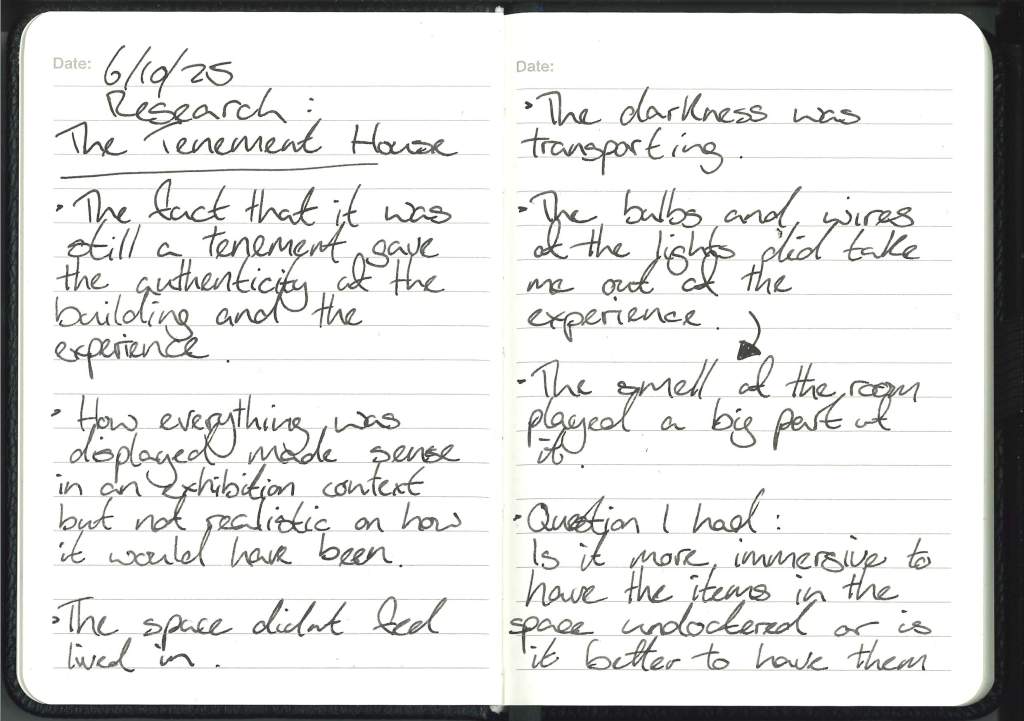 Date: 6/10/25
Research:
The Tenement House
• The fact that it was
still a tenement gave
the authenticity of the
building and the
experience.
• How everything was
displayed made sense
in an exhibition context
but not realistic on how
it would have been.
• The space didnt feel
lived in.
Date:
• The darkness was
transporting.
• The bulbs and wires
of the lights did take
me out of the
experience.
• The smell of the room
played a big part of
it.
• Question I had:
Is it more immersive to
have the items in the
space undockered or is
it better to have them